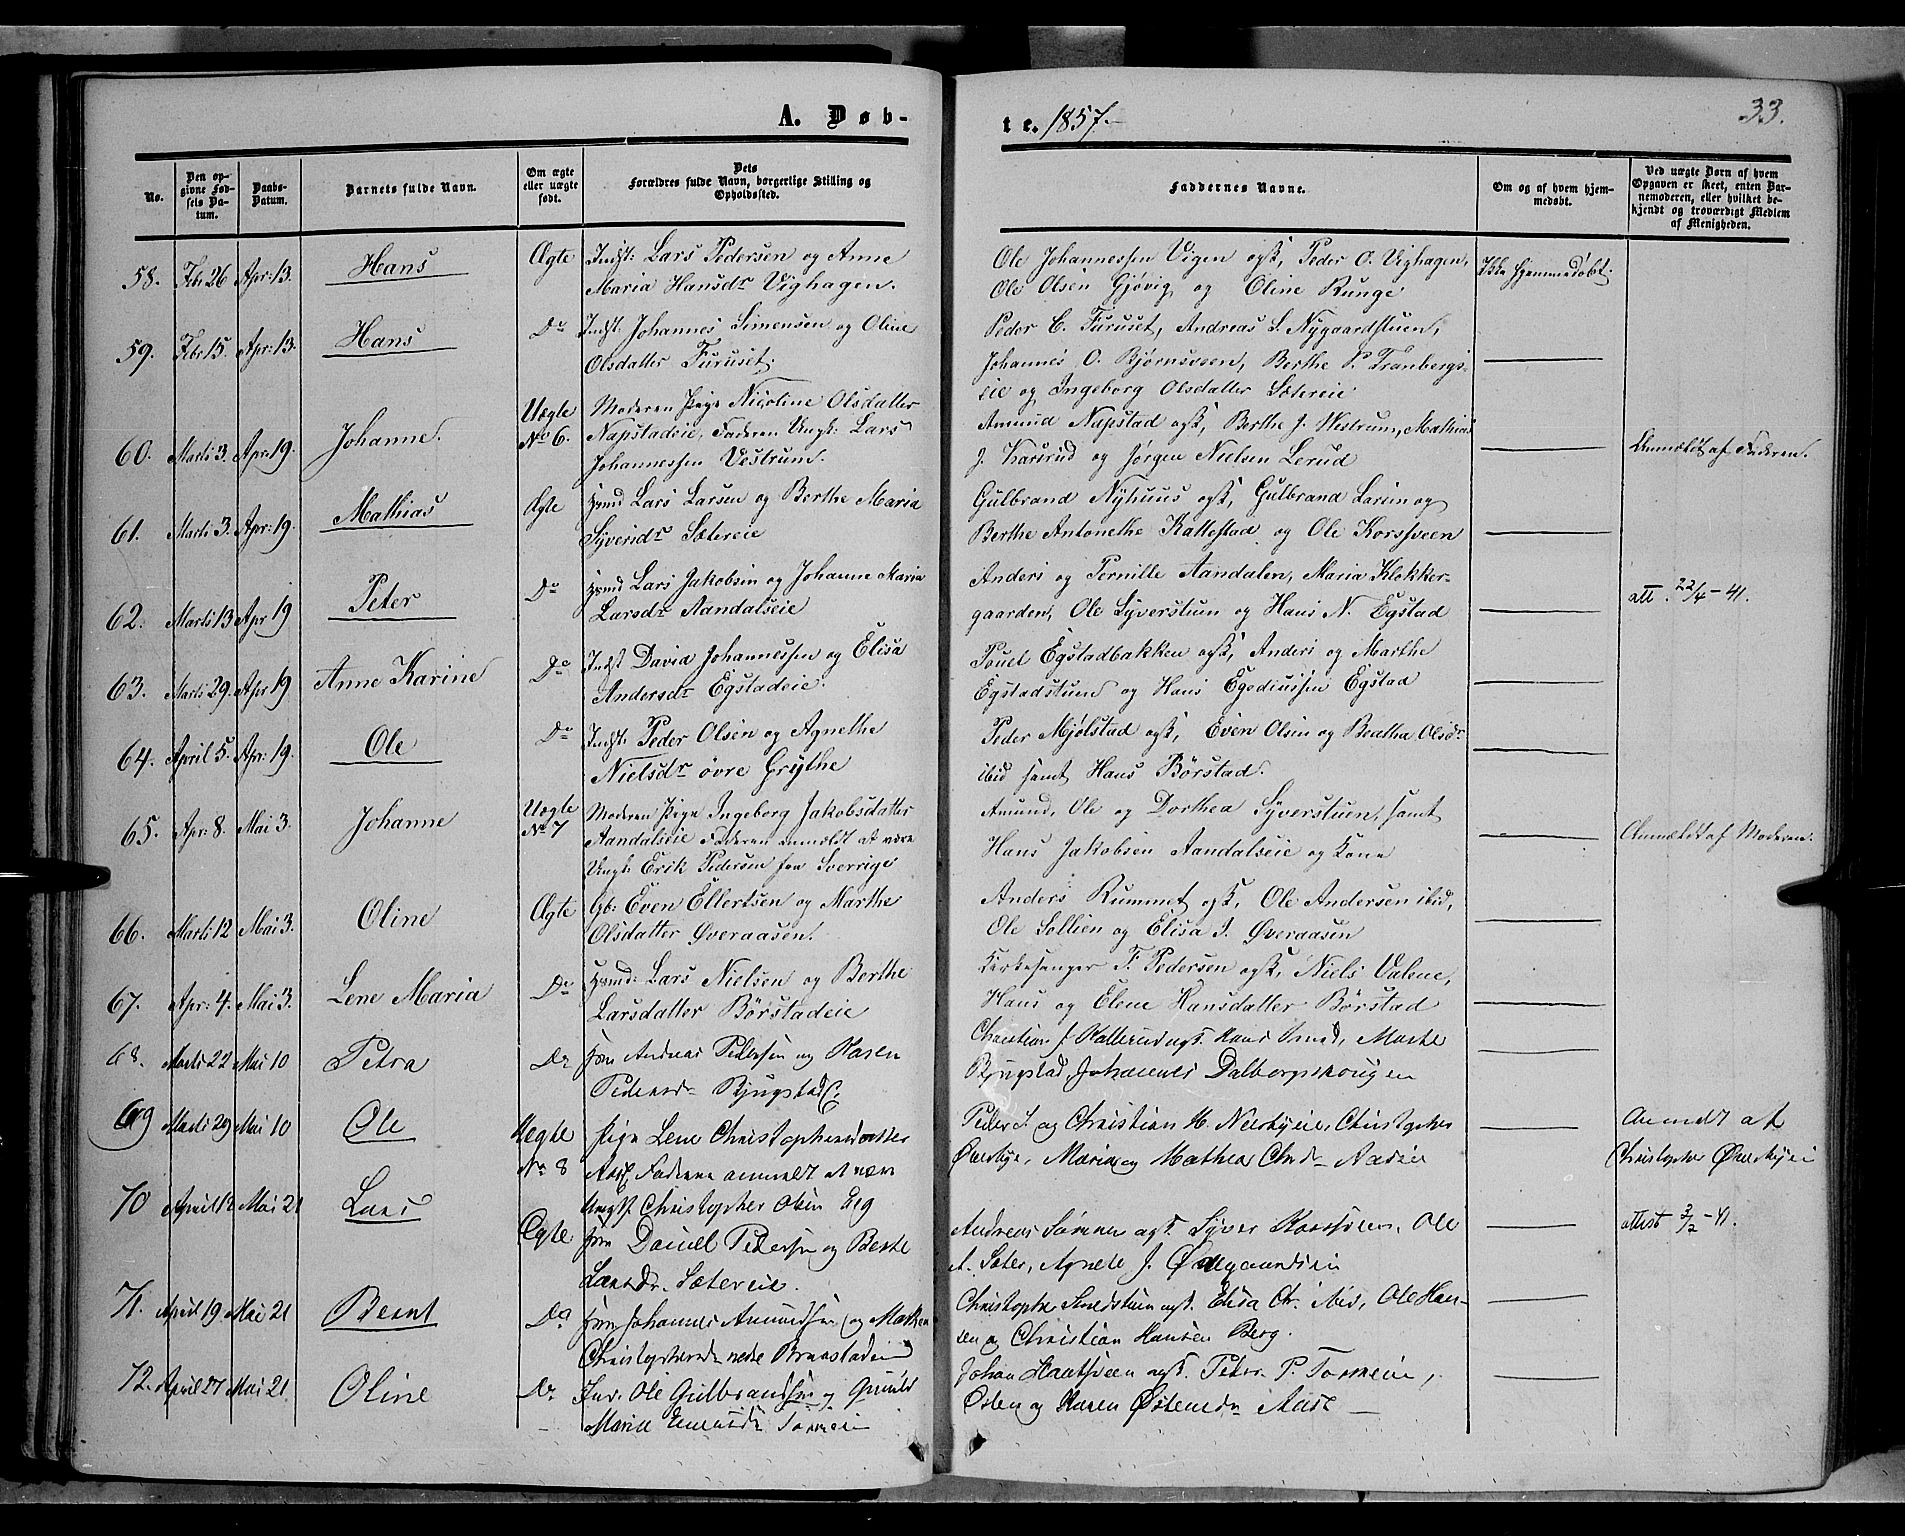 A. Døb-
te. 1857.
33.
No.
Den opgivne Fødsels Datum.
Daabs-Datum.
Barnets fulde Navn.
Om ægte eller uægte født.
Dets Forældres fulde Navn, borgerlige Stilling og Opholdssted.
Faddernes Navne.
Om og af hvem hjemmedøbt.
Ved uægte Børn af hvem Opgaven er skeet, enten Barnemoderen, eller hvilket bekjendt og troværdigt Medlem af Menigheden.
58. Feb 26 Apr: 13. Hans Ægte Indst: Lars Pedersen og Anne
Maria Hansdr Vighagen.
Ole Johannessen Vigen ogsk, Peder O. Vighagen,
Ole Olsen Gjøvig og Oline Runge
Ikke hjemmedøbt.
59. Febr 15. Apr: 13. Hans Do Indst: Johannes Simensen og Oline
Olsdatter Furuset.
Peder C. Furuset, Andreas L. Nygaardstuen,
Johannes O. Bjørnsveen, Berthe P. Tranbergs-
eie og Ingeborg Olsdatter Sætereie
60. Marts 3. Apr: 19. Johanne. Uægte No 6. Moderen Pige Nicoline Olsdatter
Napstadeie, Faderen Ungk: Lars
Johannessen Vestrum.
Amund Napstad ogsk, Berthe J. Westrum, Mathias
J. Karsrud og Jørgen Nielsen Lerud
Anmeldt af Faderen.
61. Marts 3. Apr: 19. Mathias Ægte Hmd Lars Larsen og Berthe Maria
Syversdr Sætereie
Gulbrand Nyhuus ogsk, Gulbrand Larsen og
Berthe Antonethe Kattestad og Ole Korsveen
62. Marts 13 Apr 19 Peter Do Hmd Lars Jakobsen og Johanne Maria
Larsdr Aandalseie
Anders og Pernille Aandalen, Maria Klokker-
gaarden, Ole Syverstuen og Hans N. Egstad
att. 22/4 - 41.
63. Marts 29. Apr 19 Anne Karine Do Indst David Johannessen og Elisa
Andersdr Egstadeie.
Pouel Egstadbakken ogsk, Anders og Marthe
Egstadstuen og Hans Egediussen Egstad
64. April 5. Apr: 19. Ole Do Indst: Peder Olsen og Agnethe
Nielsdr øvre Grythe
Peder Mjølstad ogsk, Even Olsen og Beatha Olsdr
ibid samt Hans Børstad.
65. Apr: 8. Mai 3. Johanne Uægte No 7 Moderen Pige Ingeborg Jakobsdatter
Aandalseie Faderen anmeldt at være
Ungk: Erik Pedersen fra Sverrige
Amund, Ole og Dorthea Syverstuen, samt
Hans Jakobsen Aandalseie og Kone
Anmeldt af Moderen.
66. Marts 12 Mai 3. Oline Ægte Gb: Even Ellertsen og Marthe
Olsdatter Øveraasen.
Anders Rummet ogsk, Ole Andersen ibid,
Ole Sollien og Elisa J. Øveraasen
67. Apr: 4. Mai 3. Lene Maria Do Hmd: Lars Nielsen og Berthe
Larsdatter Børstadeie
Kirkesanger F. Pedersen ogsk, Niels Valene,
Hans og Elene Hansdatter Børstad
68. Marts 22 Mai 10 Petra Do Andreas Pedersen og Karen
Pedersdr Bjugstad
Christian J. Hallerud ogs. Marte
Bjugstad, Johannes Dalborgshougen
69 Marts 29 Mai 10 Ole Uegte No 8 Pige Lene Christophersdatter
Faderen anmeldt at være
Ungk. Christopher Olsen Eeg
Peder J. og Christian H. Christopher
Maria og Mathea Aaseie
Anmeldt af
Christopher
70 April 12 Mai 21 Lars Ægte Daniel Pedersen og Berte
Larsdr. Sætereie.
Andreas ogs. Syver Korsveen, Ole
A. Sæter, Agnete J. Ødegaardseie
attest 3/2 - 41.
71. April 19. Mai 21 Bernt Do Johannes Amundsen og
Christophersdr nedre Braastadeie
Christopher Smedstuen ogs. Elisa Chr. ibid, Ole Han-
sen og Christian Hansen Berg.
72. April 27 Mai 21 Oline Do Ind. Ole Gulbrandsen og
Marie
Johan ogs. Peter P.
Østen og Karen Østensdr